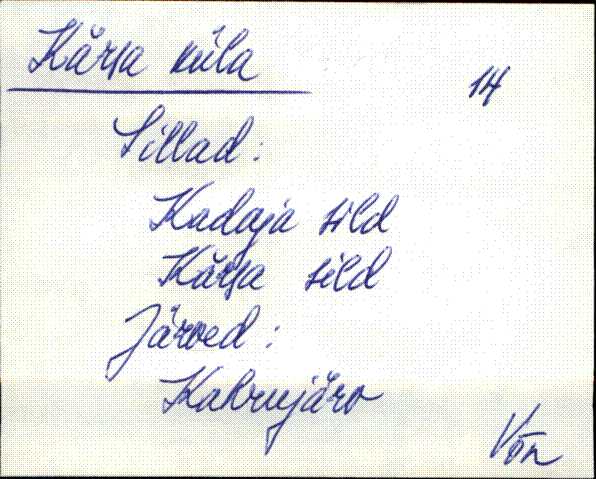 Kärsa küla
14
Sillad:
Kadaja sild
Kärsa sild
Järved:
Kakrujärv
Võn